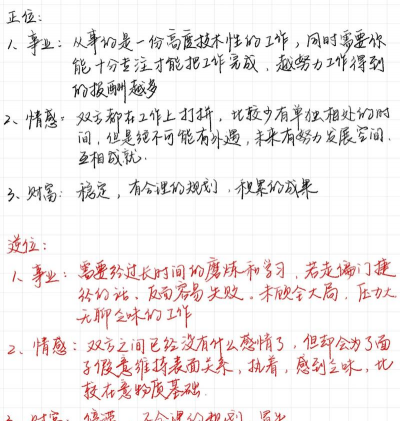 正位：
1、事业：从事的是一份高度技术性的工作，同时需要你
能十分专注才能把工作完成，越努力工作得到
的报酬越多
2、情感：双方都在工作上打拼，比较少有单独相处的时
间，但是很不可能有外遇，未来有努力发展空间.
互相成就.
3、财富：稳定，有合理的规划，积累的成果
逆位：
1、事业：需要经过长时间的磨炼和学习，若走偏门捷
径的话，反而容易失败。未顾全大局，压力大
无聊乏味的工作
2、情感：双方之间已经没有什么感情了，但却会为了面
子假意维持表面关系，执着，感到乏味，比
较在意物质基础.
3、财富：不合理的规划